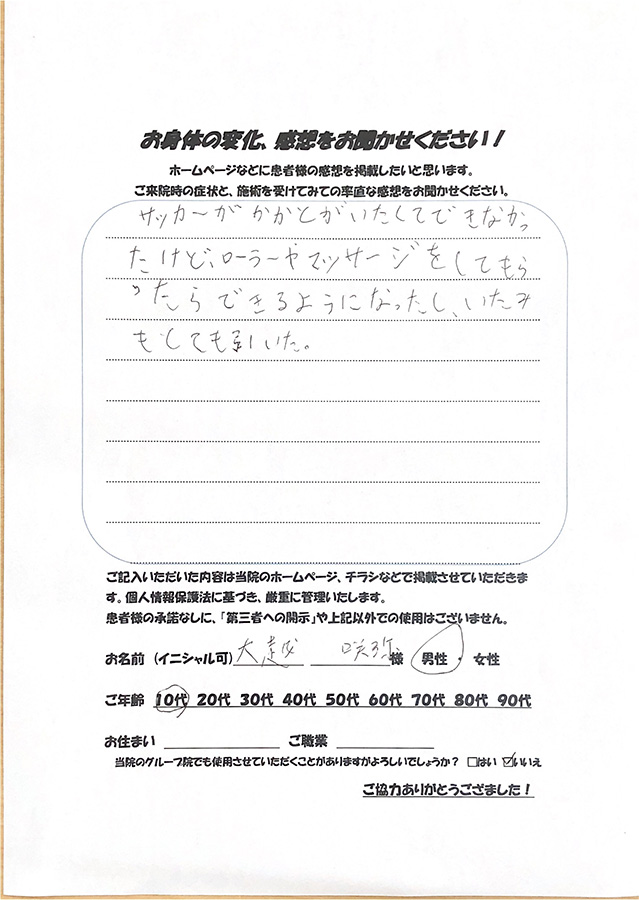 お身体の変化、感想をお聞かせください！
ホームページなどに患者様の感想を掲載したいと思います。
ご来院時の症状と、施術を受けてみての率直な感想をお聞かせください。
サッカーがかかとがいたくてできなかっ
たけど、ローラーやマッサージをしてもら
ったらできるようになったし、いたみ
もとても引いた。
ご記入いただいた内容は当院のホームページ、チラシなどで掲載させていただきま
す。個人情報保護法に基づき、厳重に管理いたします。
患者様の承諾なしに、「第三者への開示」や上記以外での使用はございません。
お名前（イニシャル可） 大 咲弥 様 男性 ・ 女性
ご年齢 10代 20代 30代 40代 50代 60代 70代 80代 90代
お住まい ご職業
当院のグループ院でも使用させていただくことがありますがよろしいでしょうか？ □はい ☑いいえ
ご協力ありがとうござました！